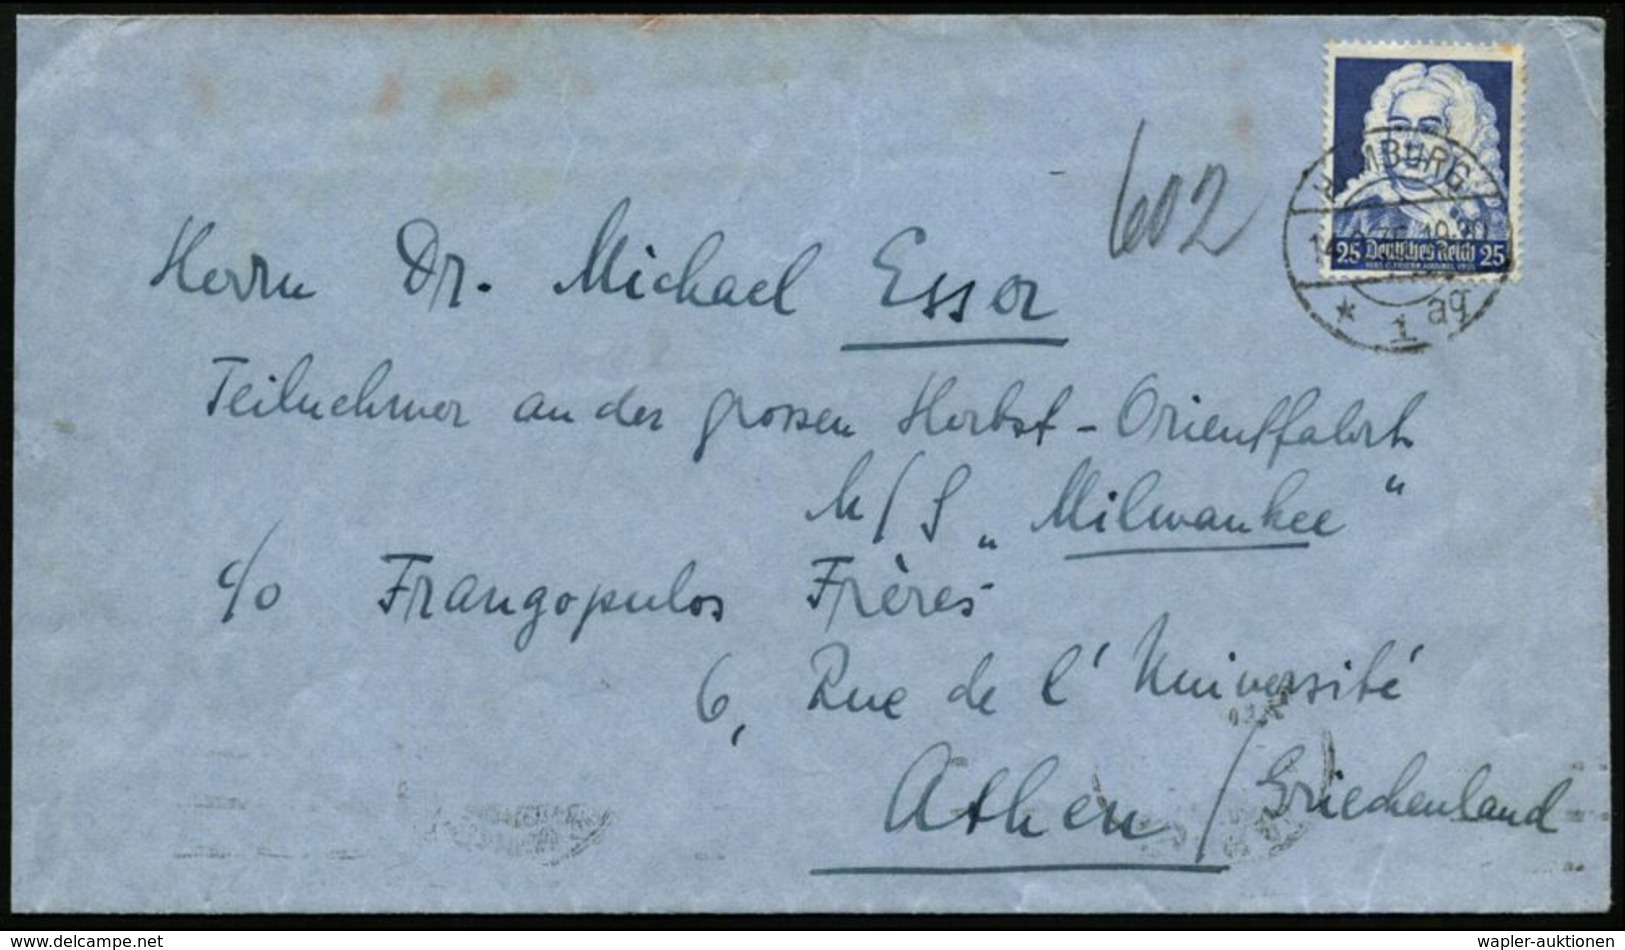 602
HAMBURG
19.30
25 Deutsches Reich 25
* 1 aq
Herrn Dr. Michael Esser
Teilnehmer an der grossen Herbst-Orientfahrt
M/S „Milwaukee"
c/o Frangopulos Frères
6, Rue de l'Université
Athen / Griechenland
www.delcampe.net
wapler-auktionen